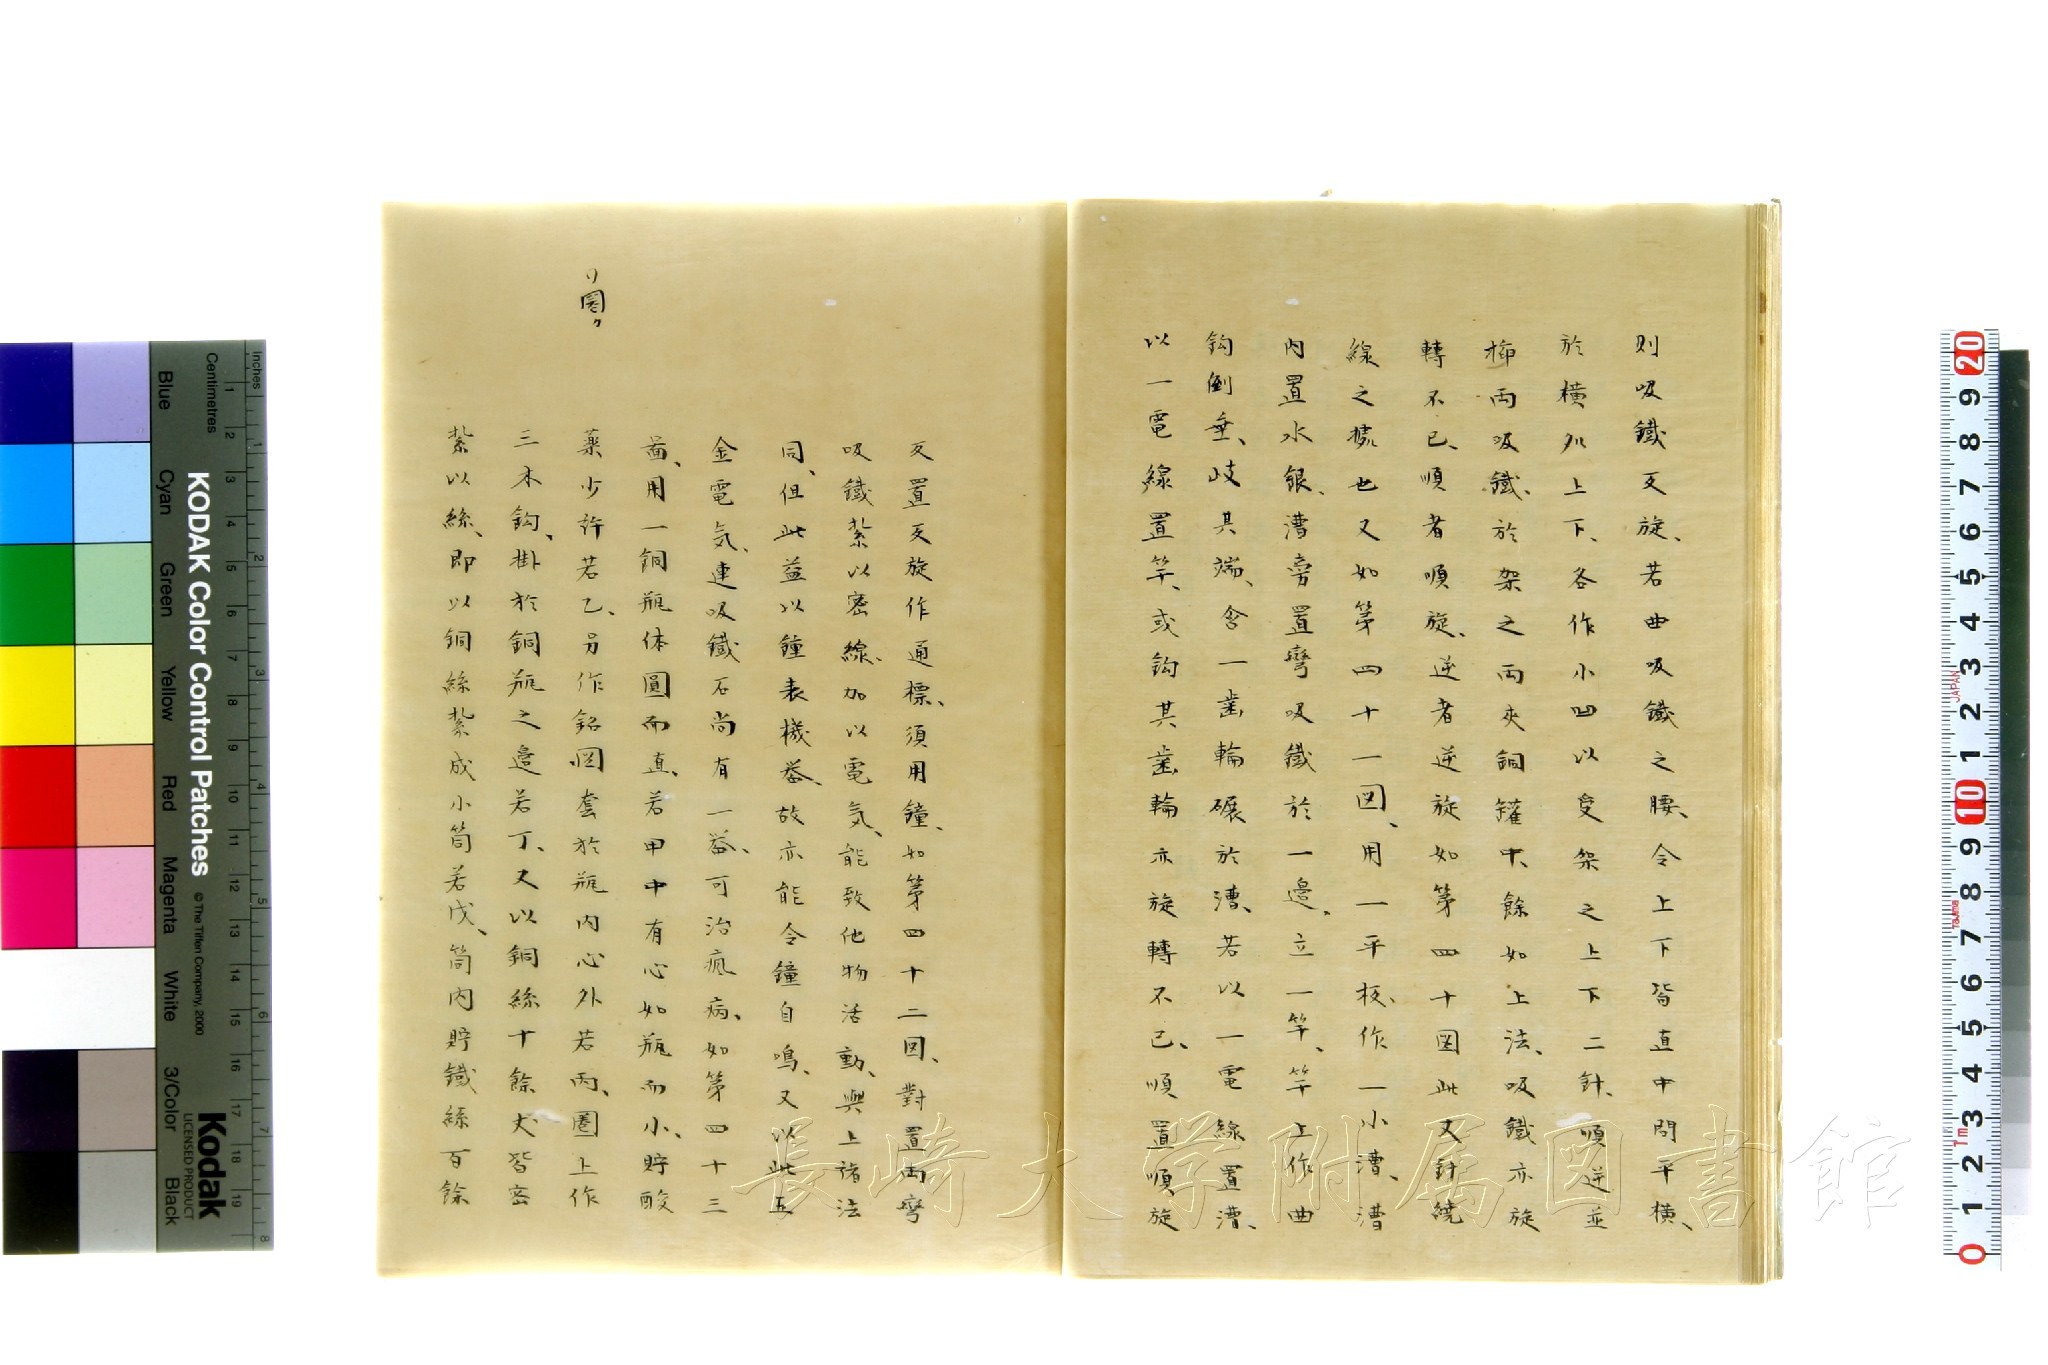 則吸鐵反旋、若曲吸鐵之腰、令上下皆直中間平横、
於横処上下、各作小凹以受架之上下二針、順逆並
揷両吸鐵、於架之両夾銅鑵中、餘如上法、吸鐵亦旋
轉不已、順者順旋、逆者逆旋如第四十図此又針繞
線之據也又如第四十一図、用一平板、作一小漕、漕
内置水銀、漕旁置彎吸鐵於一邉、立一竿、竿上作曲
鈎倒垂、岐其端、含一歯輪碾於漕、若以一電線置漕、
以一電線置竿、或鈎其歯輪亦旋轉不已、順置順旋
反置反旋作通標、須用鐘、如第四十二図、對置両彎
吸鐵紮以密線、加以電気、能致他物活動、與上諸法
同、但此益以鐘表機器、故亦能令鐘自鳴、又以此五
金電気、連吸鐵石尚有一器、可治瘋病、如第四十三
啚、用一銅瓶体圓而直、若甲中有心如瓶而小、貯酸
薬少許若乙、另作鋁図套於瓶内心外若丙、圏上作
三木鈎、掛於銅瓶之邉若丁、又以銅絲十餘丈皆密
紮以絲、即以銅絲紮成小筒若戊、筒内貯鐵絲百餘
リ圏ク
KODAK Color Control Patches
© The Tiffen Company, 2000
Kodak
LICENSED PRODUCT
Inches
Centimetres
Blue
Cyan
Green
Yellow
Red
Magenta
White
3/Color
Black
長崎大学附属図書館
JAPAN